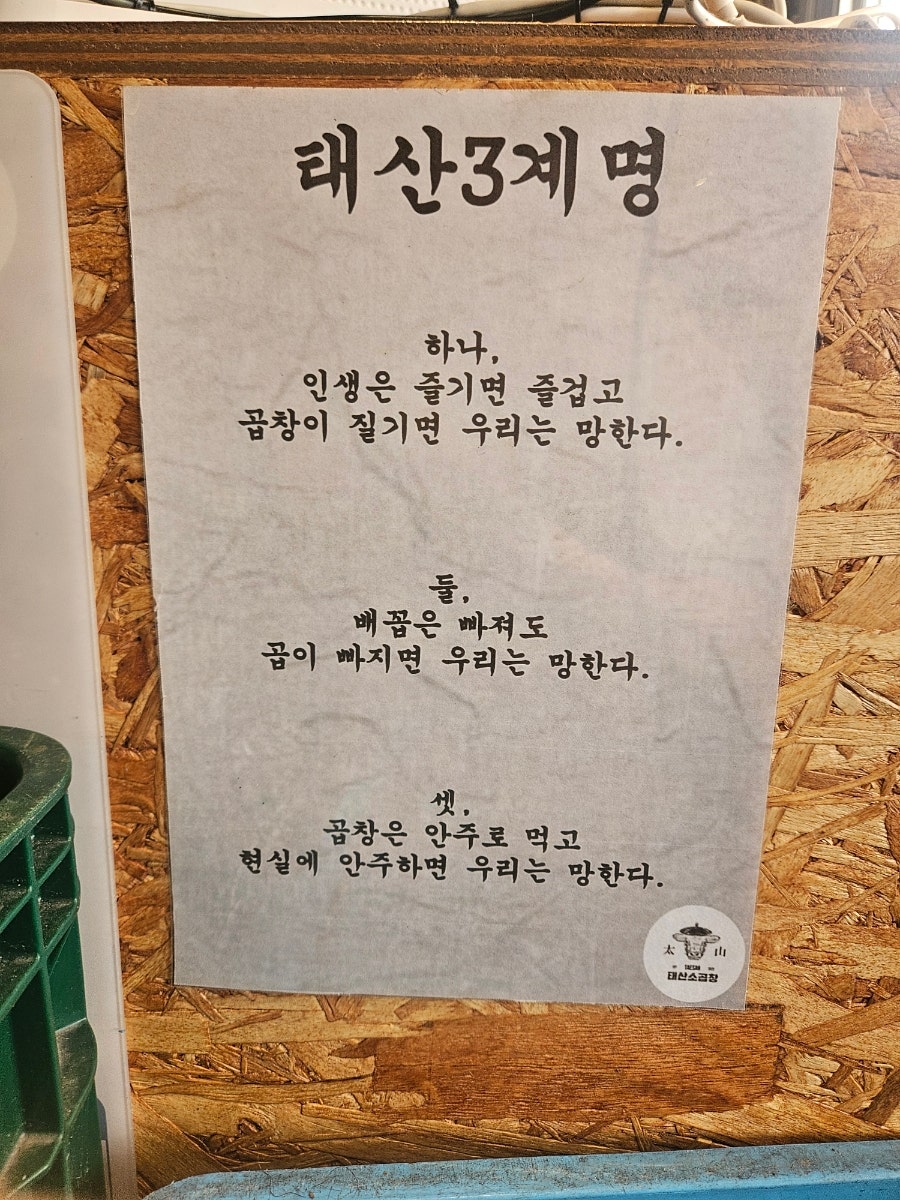 태산3계명
하나,
인생은 즐기면 즐겁고
곱창이 질기면 우리는 망한다.
둘,
배꼽은 빠져도
곱이 빠지면 우리는 망한다.
셋,
곱창은 안주로 먹고
현실에 안주하면 우리는 망한다.
太 山
태산소곱창